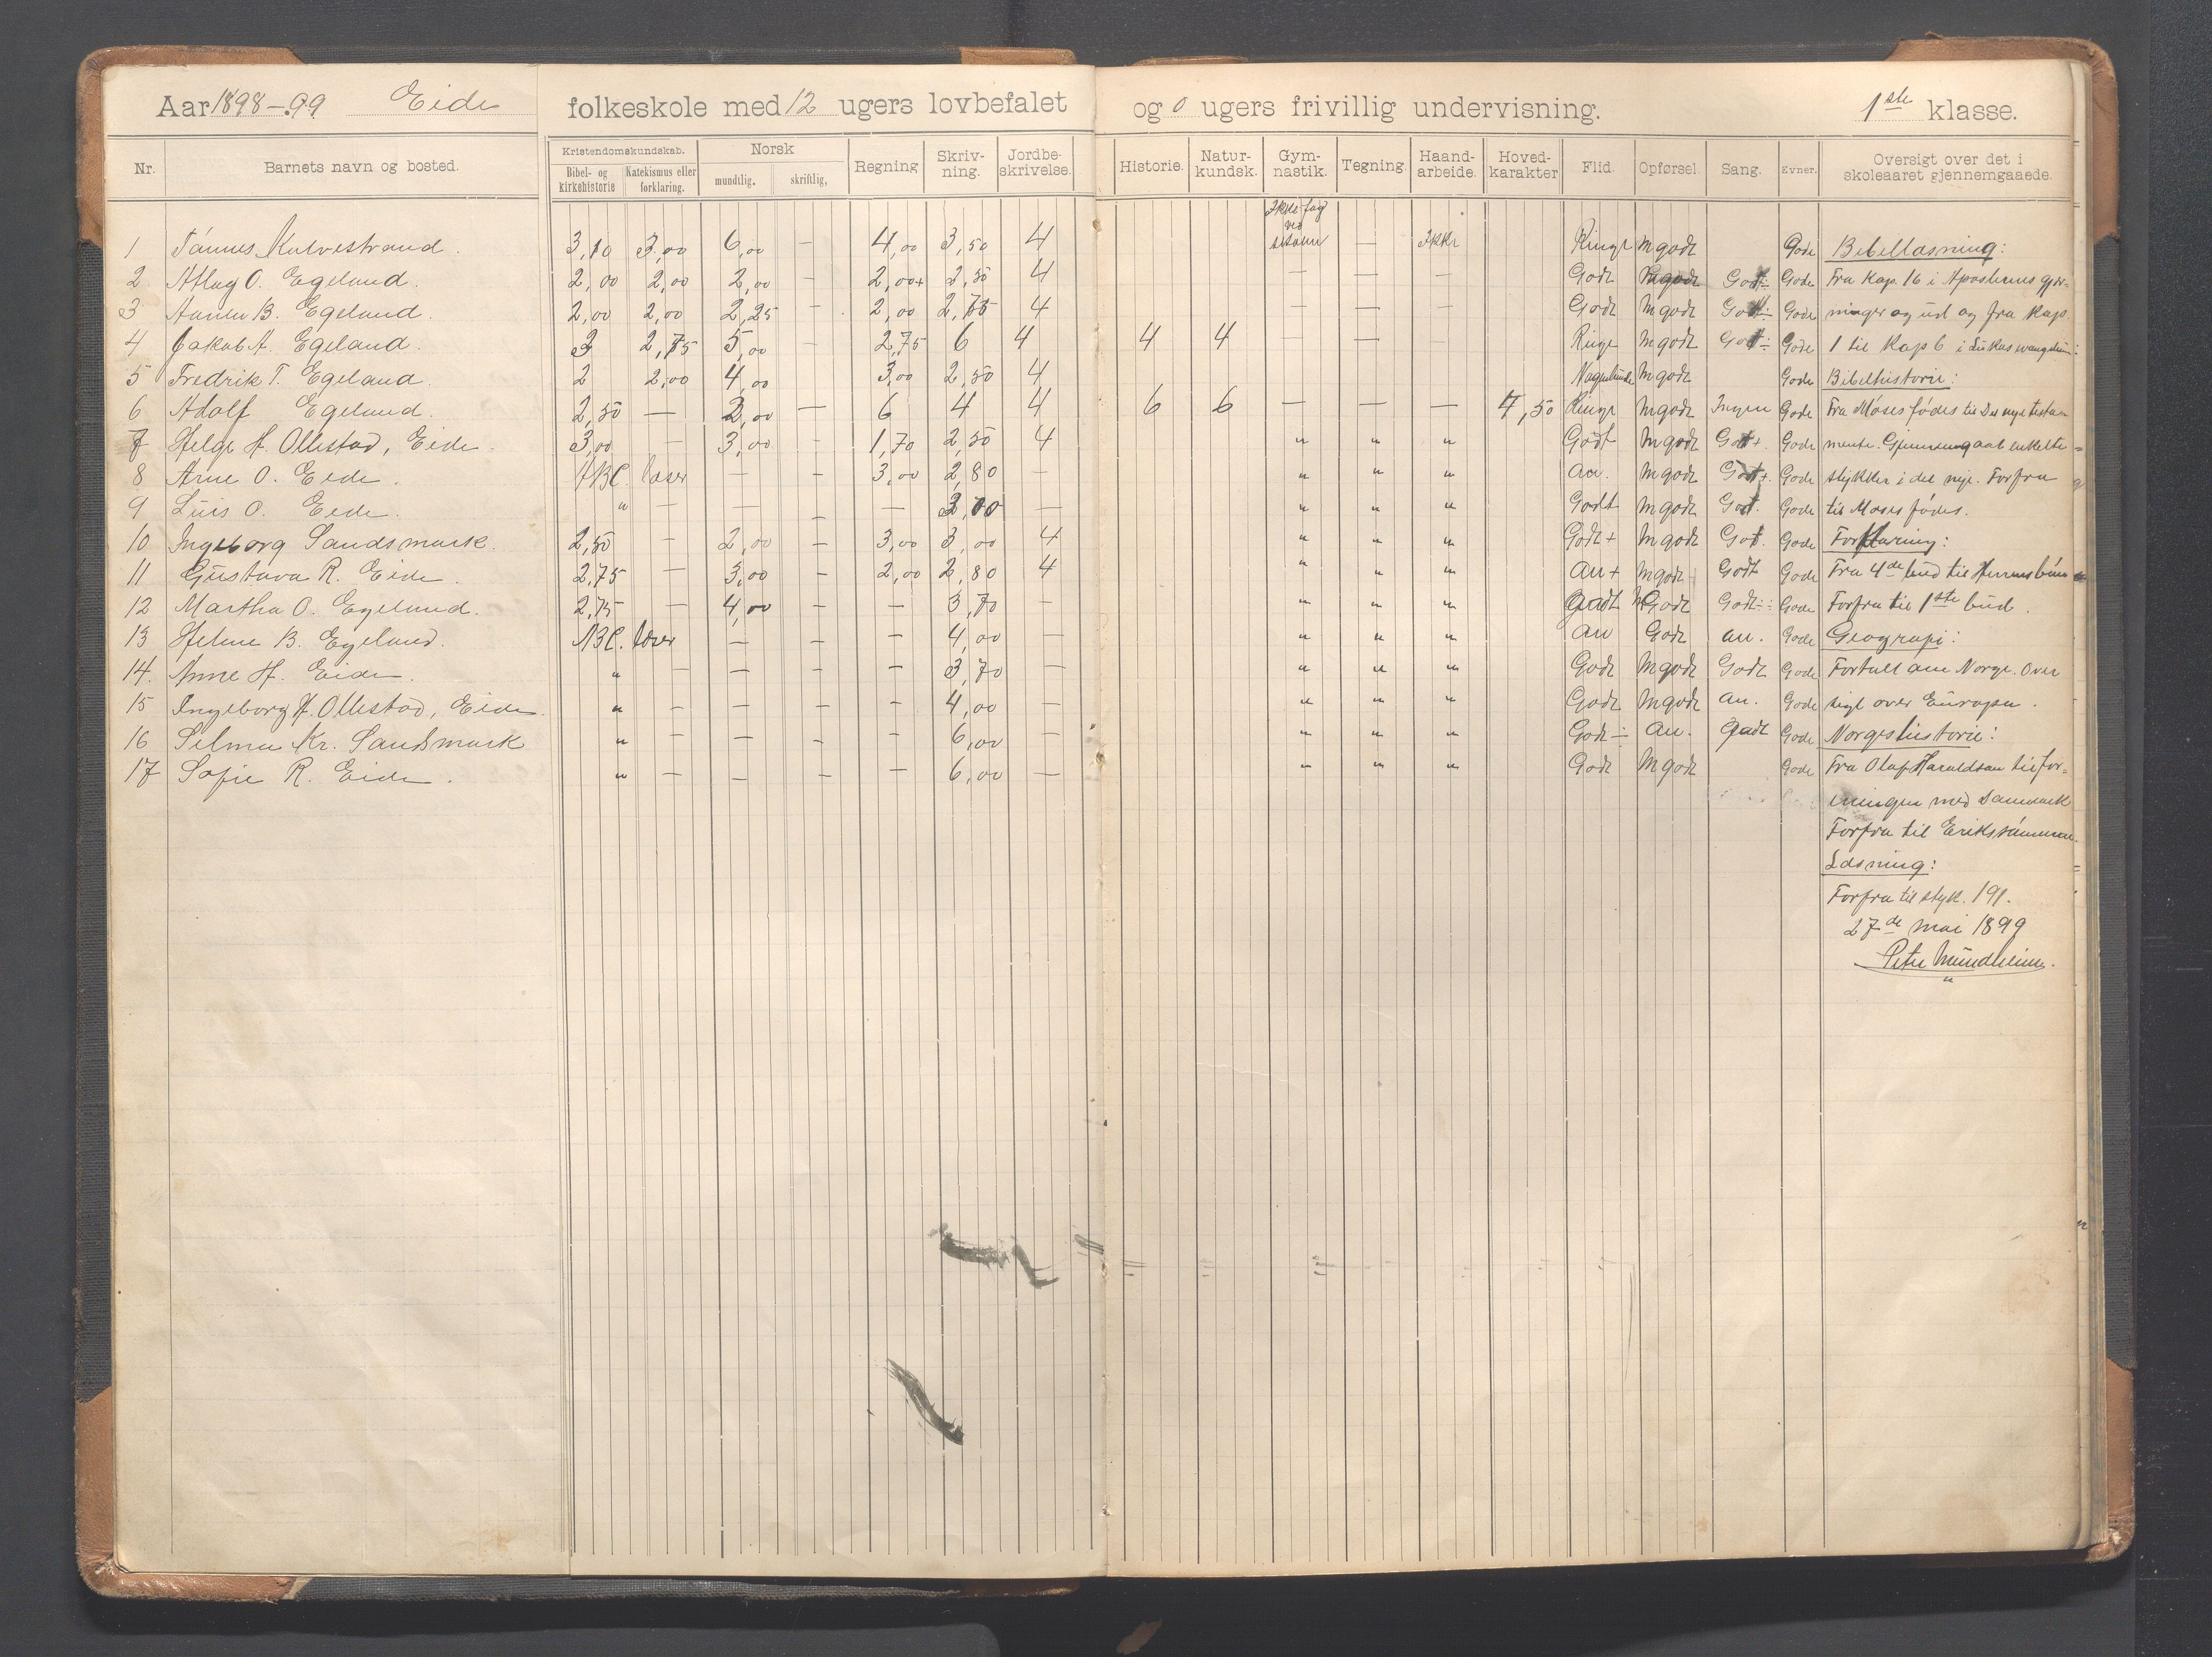 Aar 1898-99 Eide folkeskole med 12 ugers lovbefalet og 0 ugers frivillig undervisning. 1ste klasse.
Nr. Barnets navn og bosted. Kristendomskundskab. Bibel- og kirkehistorie Katekismus eller forklaring. Norsk mundtlig. skriftlig, Regning Skrivning. Jordbeskrivelse. Historie. Naturkundsk. Gymnastik. Tegning. Haandarbeide. Hovedkarakter Flid. Opførsel. Sang. Evner. Oversigt over det i skoleaaret gjennemgaaede.
Ikke fag ved
1 3,10 3,00 6,00 — 4,00 3,50 4 — Ikke Ringe M godt Gode Bibellæsning:
2 Atlag O. Egeland. 2,00 2,00 2,00 - 2,00+ 2,50 4 — — — Godt Mgodt Godt÷ Gode Fra Kap. 16 i Apostlenes gjer-
3 B. Egeland. 2,00 2,00 2,25 - 2,00 2,75 4 — — — Godt M godt Godt÷ Gode ninger og ud og fra Kap.
4 Jakob A. Egeland. 3 2,75 5,00 - 2,75 6 4 4 4 — — — Ringe M godt Godt÷ Gode 1 til Kap 6 i Lukas evangelium:
5 Fredrik T. Egeland. 2 2,00 4,00 3,00 2,50 4 M godt Gode Bibelhistorie:
6 Adolf Egeland. 2,50 — 2,00 — 6 4 4 6 6 — — — 7,50 Ringe M godt Ingen Gode Fra Moses fødes til Det nye testa-
7 Helge H. Ollestad, Eide. 3,00 - 3,00 - 1,70 2,50 4 " " " Godt M godt Godt+ Gode mente. Gjennemgaat enkelte
8 Arne O. Eide. ABC. læser — - 3,00 2,80 — " " " an. M godt Godt+ Gode stykker i det nye. Forfra
9 Luis O. Eide. " — — — — 3,00 — " " " Godt M godt Godt. Gode til Moses fødes.
10 Ingeborg Sandsmark. 2,50 - 2,00 - 3,00 3,00 4 " " " Godt+ M godt Godt. Gode Forklaring:
11 Gustava R. Eide. 2,75 — 3,00 - 2,00 2,80 4 " " " an+ M godt Godt Gode Fra 4de bud til Herrens bøn
12 Martha O. Egeland. 2,75 — 4,00 - — 3,70 - " " " Godt M Godt Godt÷ Gode Forfra til 1ste bud.
13 Helene B. Egeland. ABC. læser — - — 4,00 — " " " an Godt an. Gode Geograpi:
14. Anne H. Eide. " — — - — 3,70 — " " " Godt M godt Godt Gode Fortalt om Norge. Over
15 Ingeborg H. Ollestad, Eide. " — — - — 4,00 — " " " Godt M godt an. Gode sigt over Europa.
16 Selma Kr. Sandsmark " — — - — 6,00 — " " " Godt÷ an. Godt Gode Norgeshistorie:
17 Sofie R. Eide. " — — - — 6,00 — " " " Godt M godt Gode Fra Olaf Haraldsøn til for-
eningen med Danmark
Forfra til Erikssønnerne.
Læsning:
Forfra til styk. 191.
27de mai 1899
Peter Mundheim.